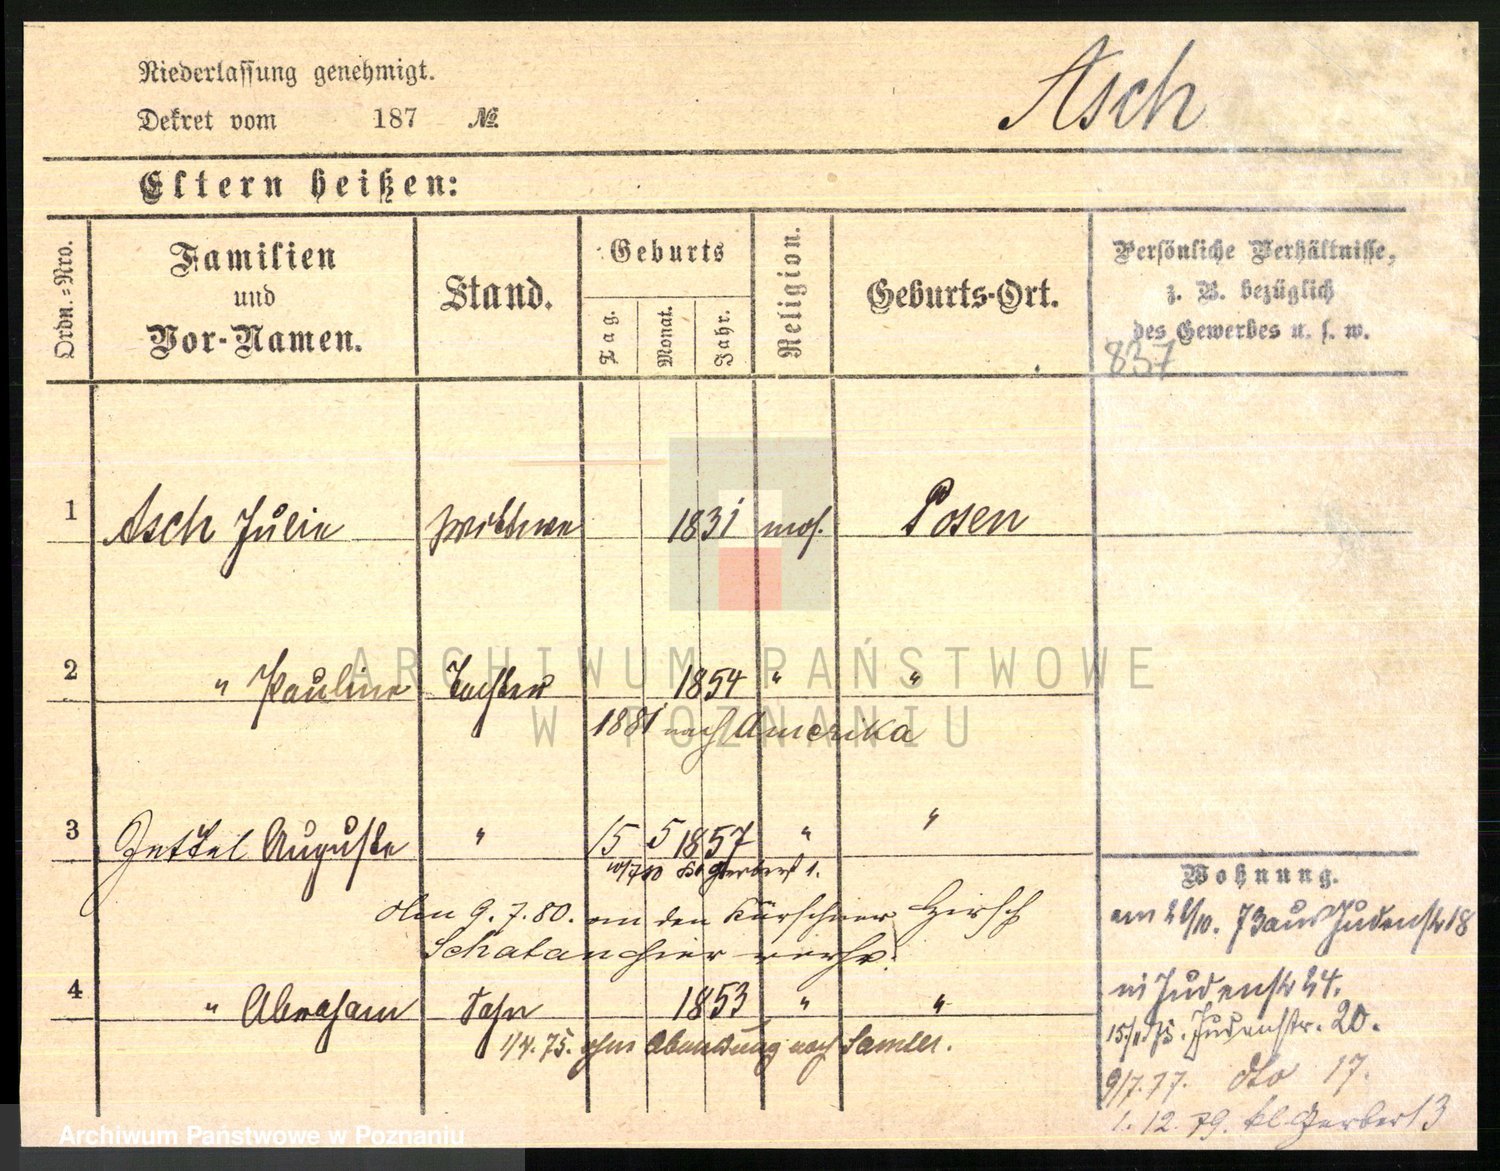 Niederlassung genehmigt.
Dekret vom 187 №
Asch
Eltern heißen:
Ordn.=Nro.
Familien
und
Vor-Namen.
Stand.
Geburts
Tag.
Monat.
Jahr.
Religion.
Geburts-Ort.
Persönliche Verhältnisse,
z. B. bezüglich
des Gewerbes u. s. w.
837
1 Asch Julie Wittwe 1831 mos. Posen
2 " Pauline Tochter 1854 " "
1881 nach Amerika
3 Auguste " 15 5 1857 " "
den 9. 7. 80. an den Kürschner Hirsch
verh.
4 " Abraham Sohn 1853 " "
1/4. 75. ohne Abmeldung nach
Wohnung.
am 73 aus Judenstr 18
n/ Judenstr 24.
Judenstr. 20.
9/7. 77. dto 17.
1. 12. 79. kl Gerberst 3
ARCHIWUM PAŃSTWOWE
W POZNANIU
Archiwum Państwowe w Poznaniu